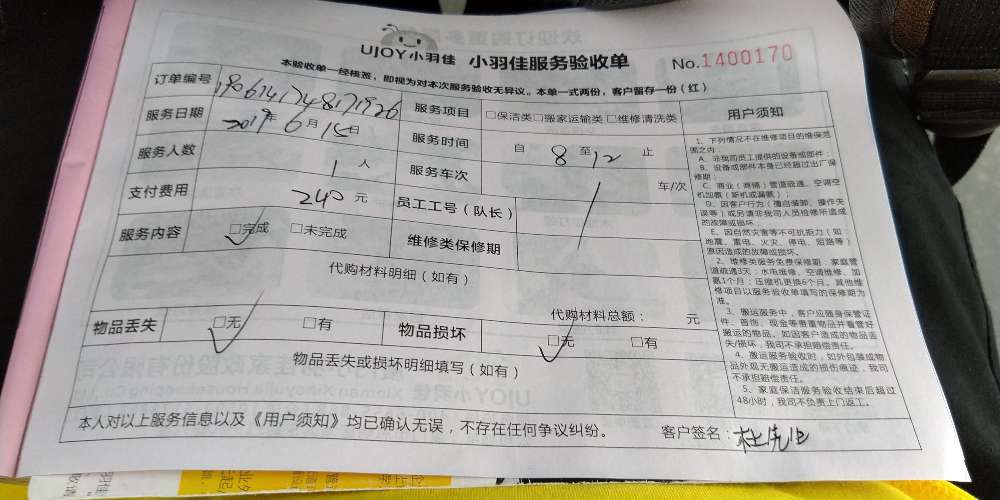 UJOY小羽佳 小羽佳服务验收单 No.1400170
本验收单一经核签，即视为对本次服务验收无异议。本单一式两份，客户留存一份（红）
订单编号 服务项目 □保洁类□搬家运输类□维修清洗类 用户须知
服务日期 2019年6月15日 服务时间 自 8 至 12 止
服务人数 1 人 服务车次 车/次
支付费用 240 元 员工工号（队长）
服务内容 □完成 □未完成 维修类保修期
代购材料明细（如有）
代购材料总额： 元
物品丢失 □无 □有 物品损坏 □无 □有
物品丢失或损坏明细填写（如有）
1、下列情况不在维修项目的维保范
围之内：
A、非我司员工提供的设备或部件；
B、设备或部件本身已经超过出厂保
修期；
C、商业（商铺）管道疏通、空调空
机加氨（新机或漏氨）；
D、因客户行为（擅自装卸、操作失
误等）或另请非我司人员检修所造成
的故障或损坏；
E、因自然灾害等不可抗拒力（如：
地震、雷电、火灾、停电、短路等）
原因造成的故障或损坏。
2、维修类服务免费保修期：家庭管
道疏通3天；水电维修、空调维修、加
氨1个月；压缩机更换6个月。其他维
修项目以服务验收单填写的保修期为
准。
3、搬运服务中，客户应随身保管证
件、首饰、现金等贵重物品并看管好
搬运的物品。如因客户造成的物品丢
失/损坏，我司不承担赔偿责任。
4、搬运服务验收时，如外包装或物
品外观无搬运造成的损伤痕迹，我司
不承担赔偿责任。
5、家庭保洁服务验收结束后超过
48小时，我司不负责上门返工。
本人对以上服务信息以及《用户须知》均已确认无误，不存在任何争议纠纷。 客户签名：